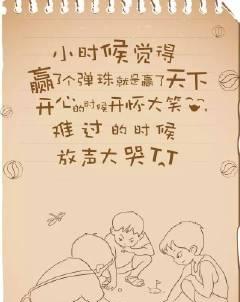 小时候觉得
赢了个弹珠就是赢了天下
开心的时候开怀大笑
难过的时候
放声大哭T,T